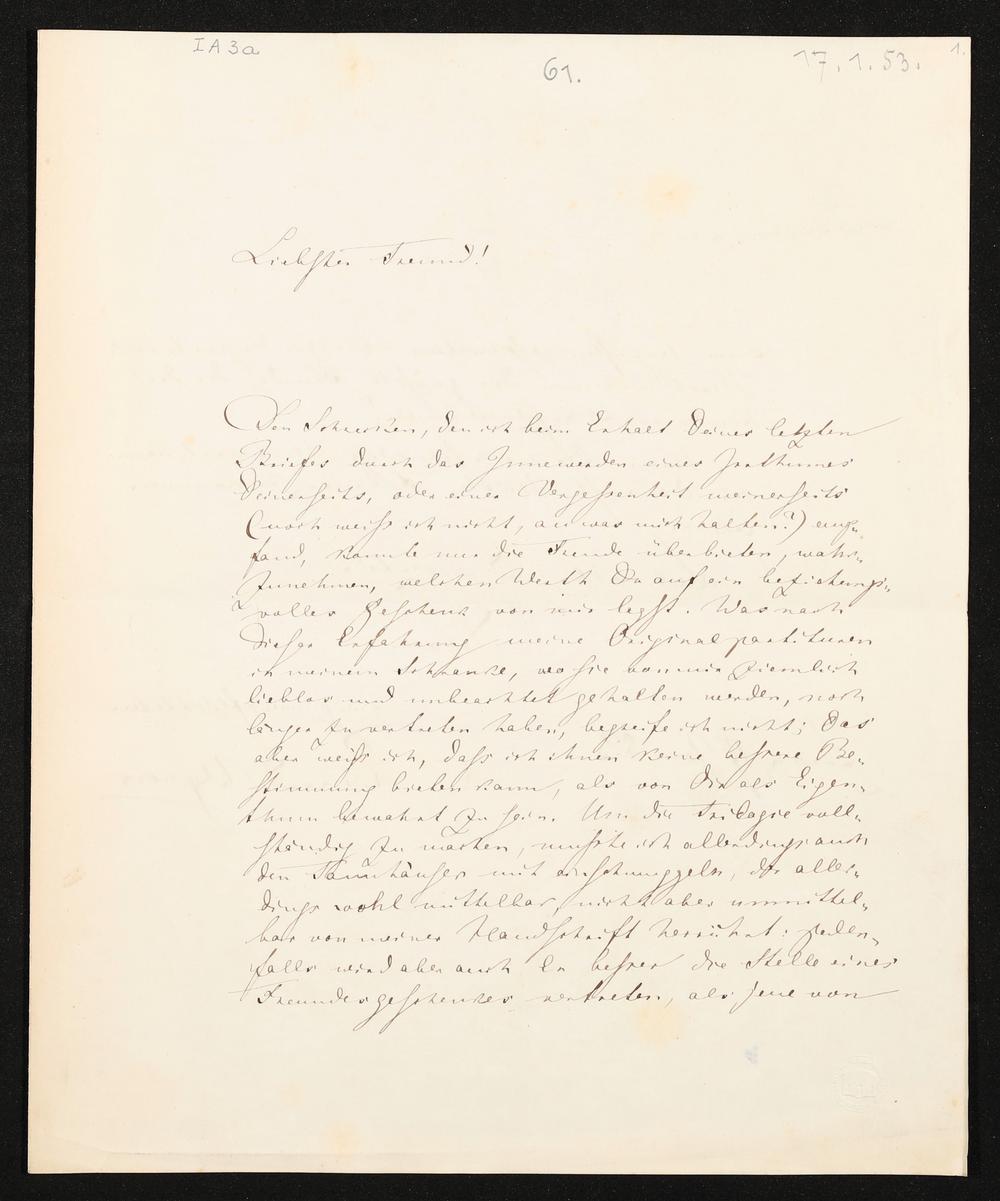 IA3a
61.
17.1.53.
1.
Liebster Freund!
Den Schrecken, den ich beim Erhalt Deines letzten
Briefes durch das Innewerden eines Irrthumes
Deinerseits, oder einer Vergessenheit meinerseits
(noch weiss ich nicht, an was mich halten?) emp-
fand, konnte nur die Freude überbieten, wahr-
zunehmen, welchen Werth Du auf ein beziehungs-
volles Geschenk von mir legst. Was nach
dieser Erfahrung meine Originalpartituren
in meinem Schranke, wo sie von mir ziemlich
lieblos und unbeachtet gehalten werden, noch
länger zu vertreten haben, begreife ich nicht; Das
aber weiss ich, dass ich ihnen keine bessere Be-
stimmung bieten kann, als von Dir als Eigen-
thum bewahrt zu sein. Um die Trilogie voll-
ständig zu machen, musste ich allerdings auch
den Tannhäuser mit einschmuggeln, der aller-
dings wohl mittelbar, nicht aber unmittel-
bar von meiner Handschrift herrührt: jeden-
falls wird aber auch Er besser die Stelle eines
Freundesgeschenkes vertreten, als jene von